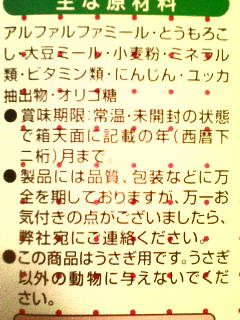 主な原材料
アルファルファミール・とうもろこ
し・大豆ミール・小麦粉・ミネラル
類・ビタミン類・にんじん・ユッカ
抽出物・オリゴ糖
●賞味期限:常温・未開封の状態
で箱天面に記載の年(西暦下
二桁)月まで。
●製品には品質、包装などに万
全を期しておりますが、万一お
気付きの点がございましたら、
弊社宛にご連絡ください。
●この商品はうさぎ用です。うさぎ
以外の動物に与えないでくだ
さい。